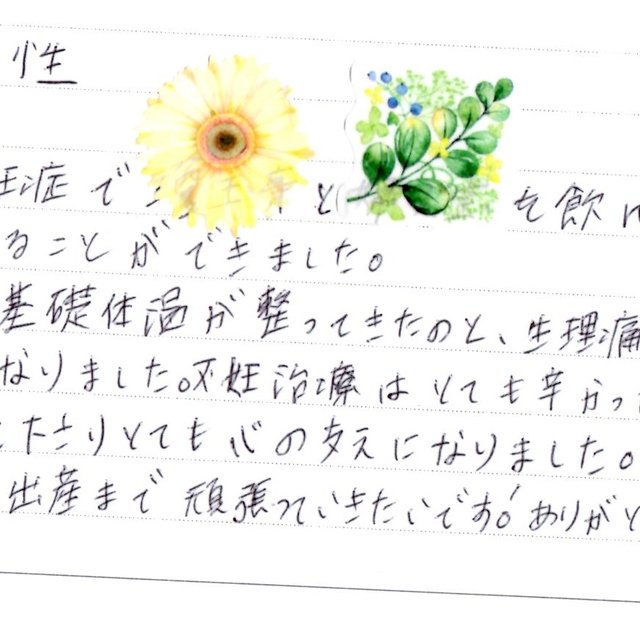 性
症で
と
を飲
ることができました。
基礎体温が整ってきたのと、生理痛
なりました。不妊治療はとても辛かっ
たりとても心の支えになりました。
出産まで頑張っていきたいです!ありがと